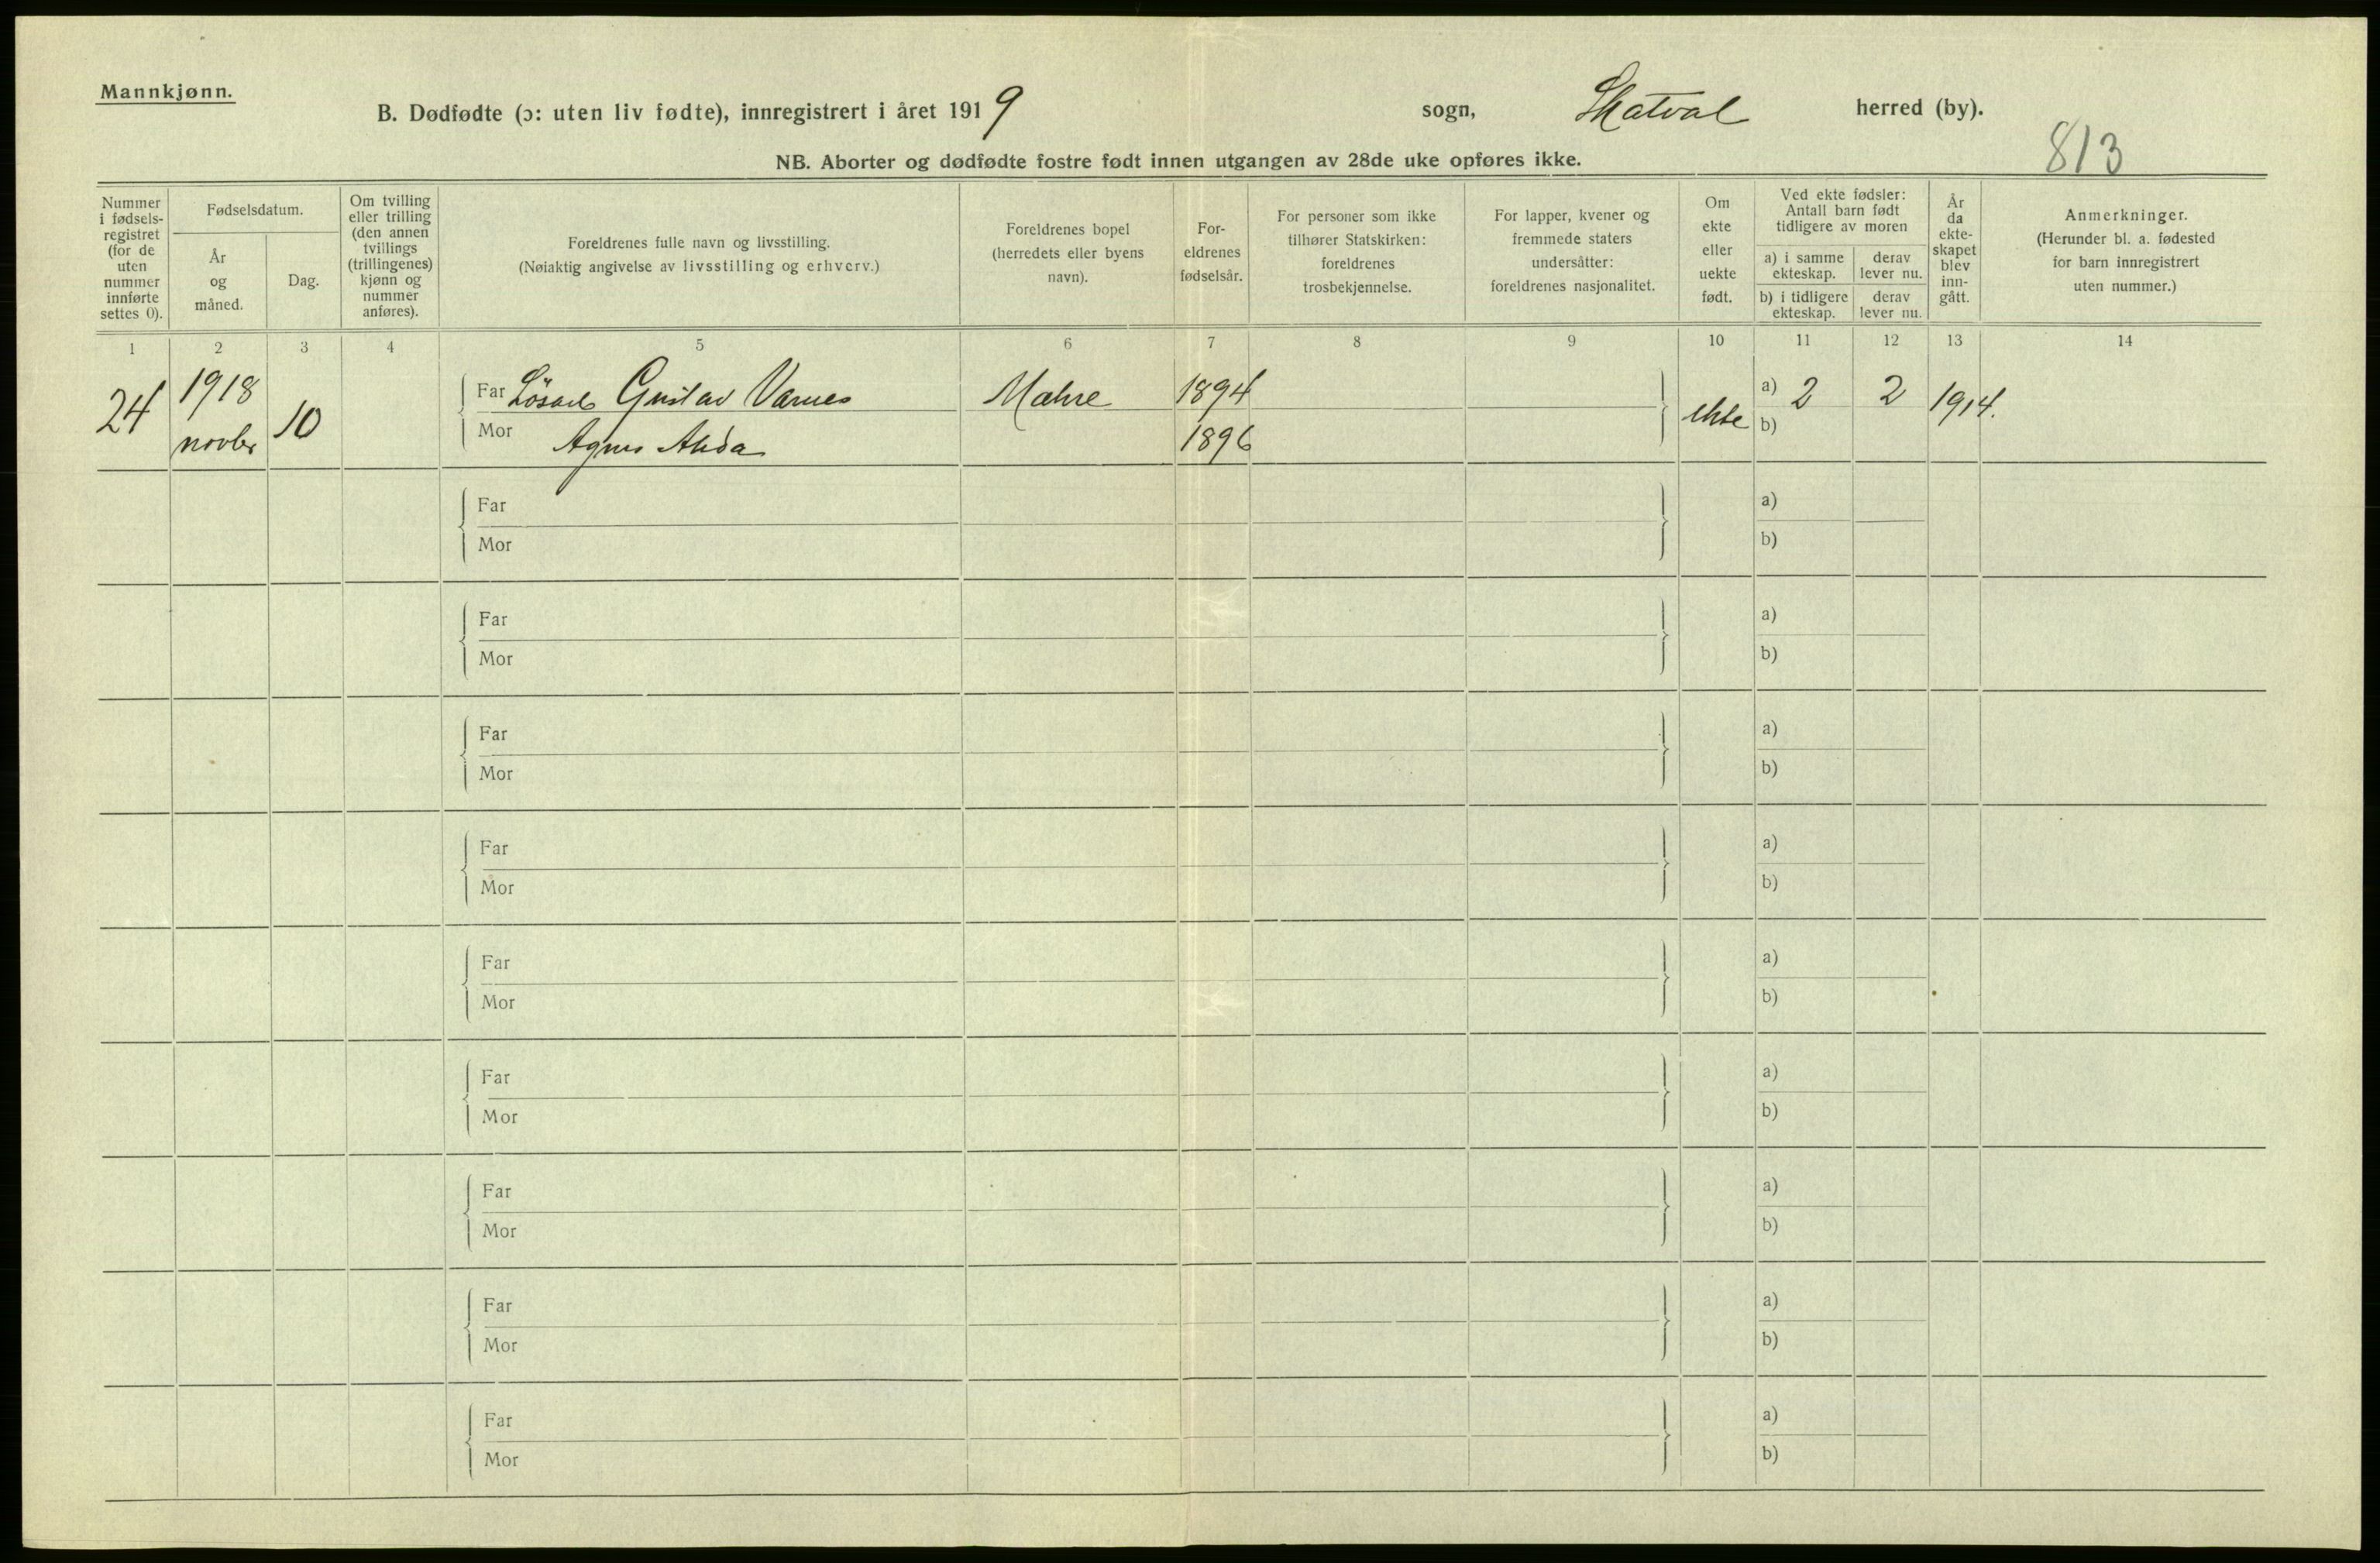 Mannkjønn.
B. Dødfødte (ɔ: uten liv fødte), innregistrert i året 1919 sogn, Skatval herred (by).
813
NB. Aborter og dødfødte fostre født innen utgangen av 28de uke opføres ikke.
Nummer i fødsels-registret (for de uten nummer innførte settes 0).
Fødselsdatum.
År og måned.
Dag.
Om tvilling eller trilling (den annen tvillings (trillingenes) kjønn og nummer anføres).
Foreldrenes fulle navn og livsstilling.
(Nøiaktig angivelse av livsstilling og erhverv.)
Foreldrenes bopel (herredets eller byens navn).
For-eldrenes fødselsår.
For personer som ikke tilhører Statskirken: foreldrenes trosbekjennelse.
For lapper, kvener og fremmede staters undersåtter: foreldrenes nasjonalitet.
Om ekte eller uekte født.
Ved ekte fødsler: Antall barn født tidligere av moren
a) i samme ekteskap.
derav lever nu.
b) i tidligere ekteskap.
derav lever nu.
År da ekte-skapet blev inn-gått.
Anmerkninger.
(Herunder bl. a. fødested for barn innregistrert uten nummer.)
1 2 3 4 5 6 7 8 9 10 11 12 13 14
24 1918 novbr 10 Far Gustav Varnes 1894 ekte a) 2 2 1914.
Mor Agnes 1896 b)
Far a)
Mor b)
Far a)
Mor b)
Far a)
Mor b)
Far a)
Mor b)
Far a)
Mor b)
Far a)
Mor b)
Far a)
Mor b)
Far a)
Mor b)
Far a)
Mor b)